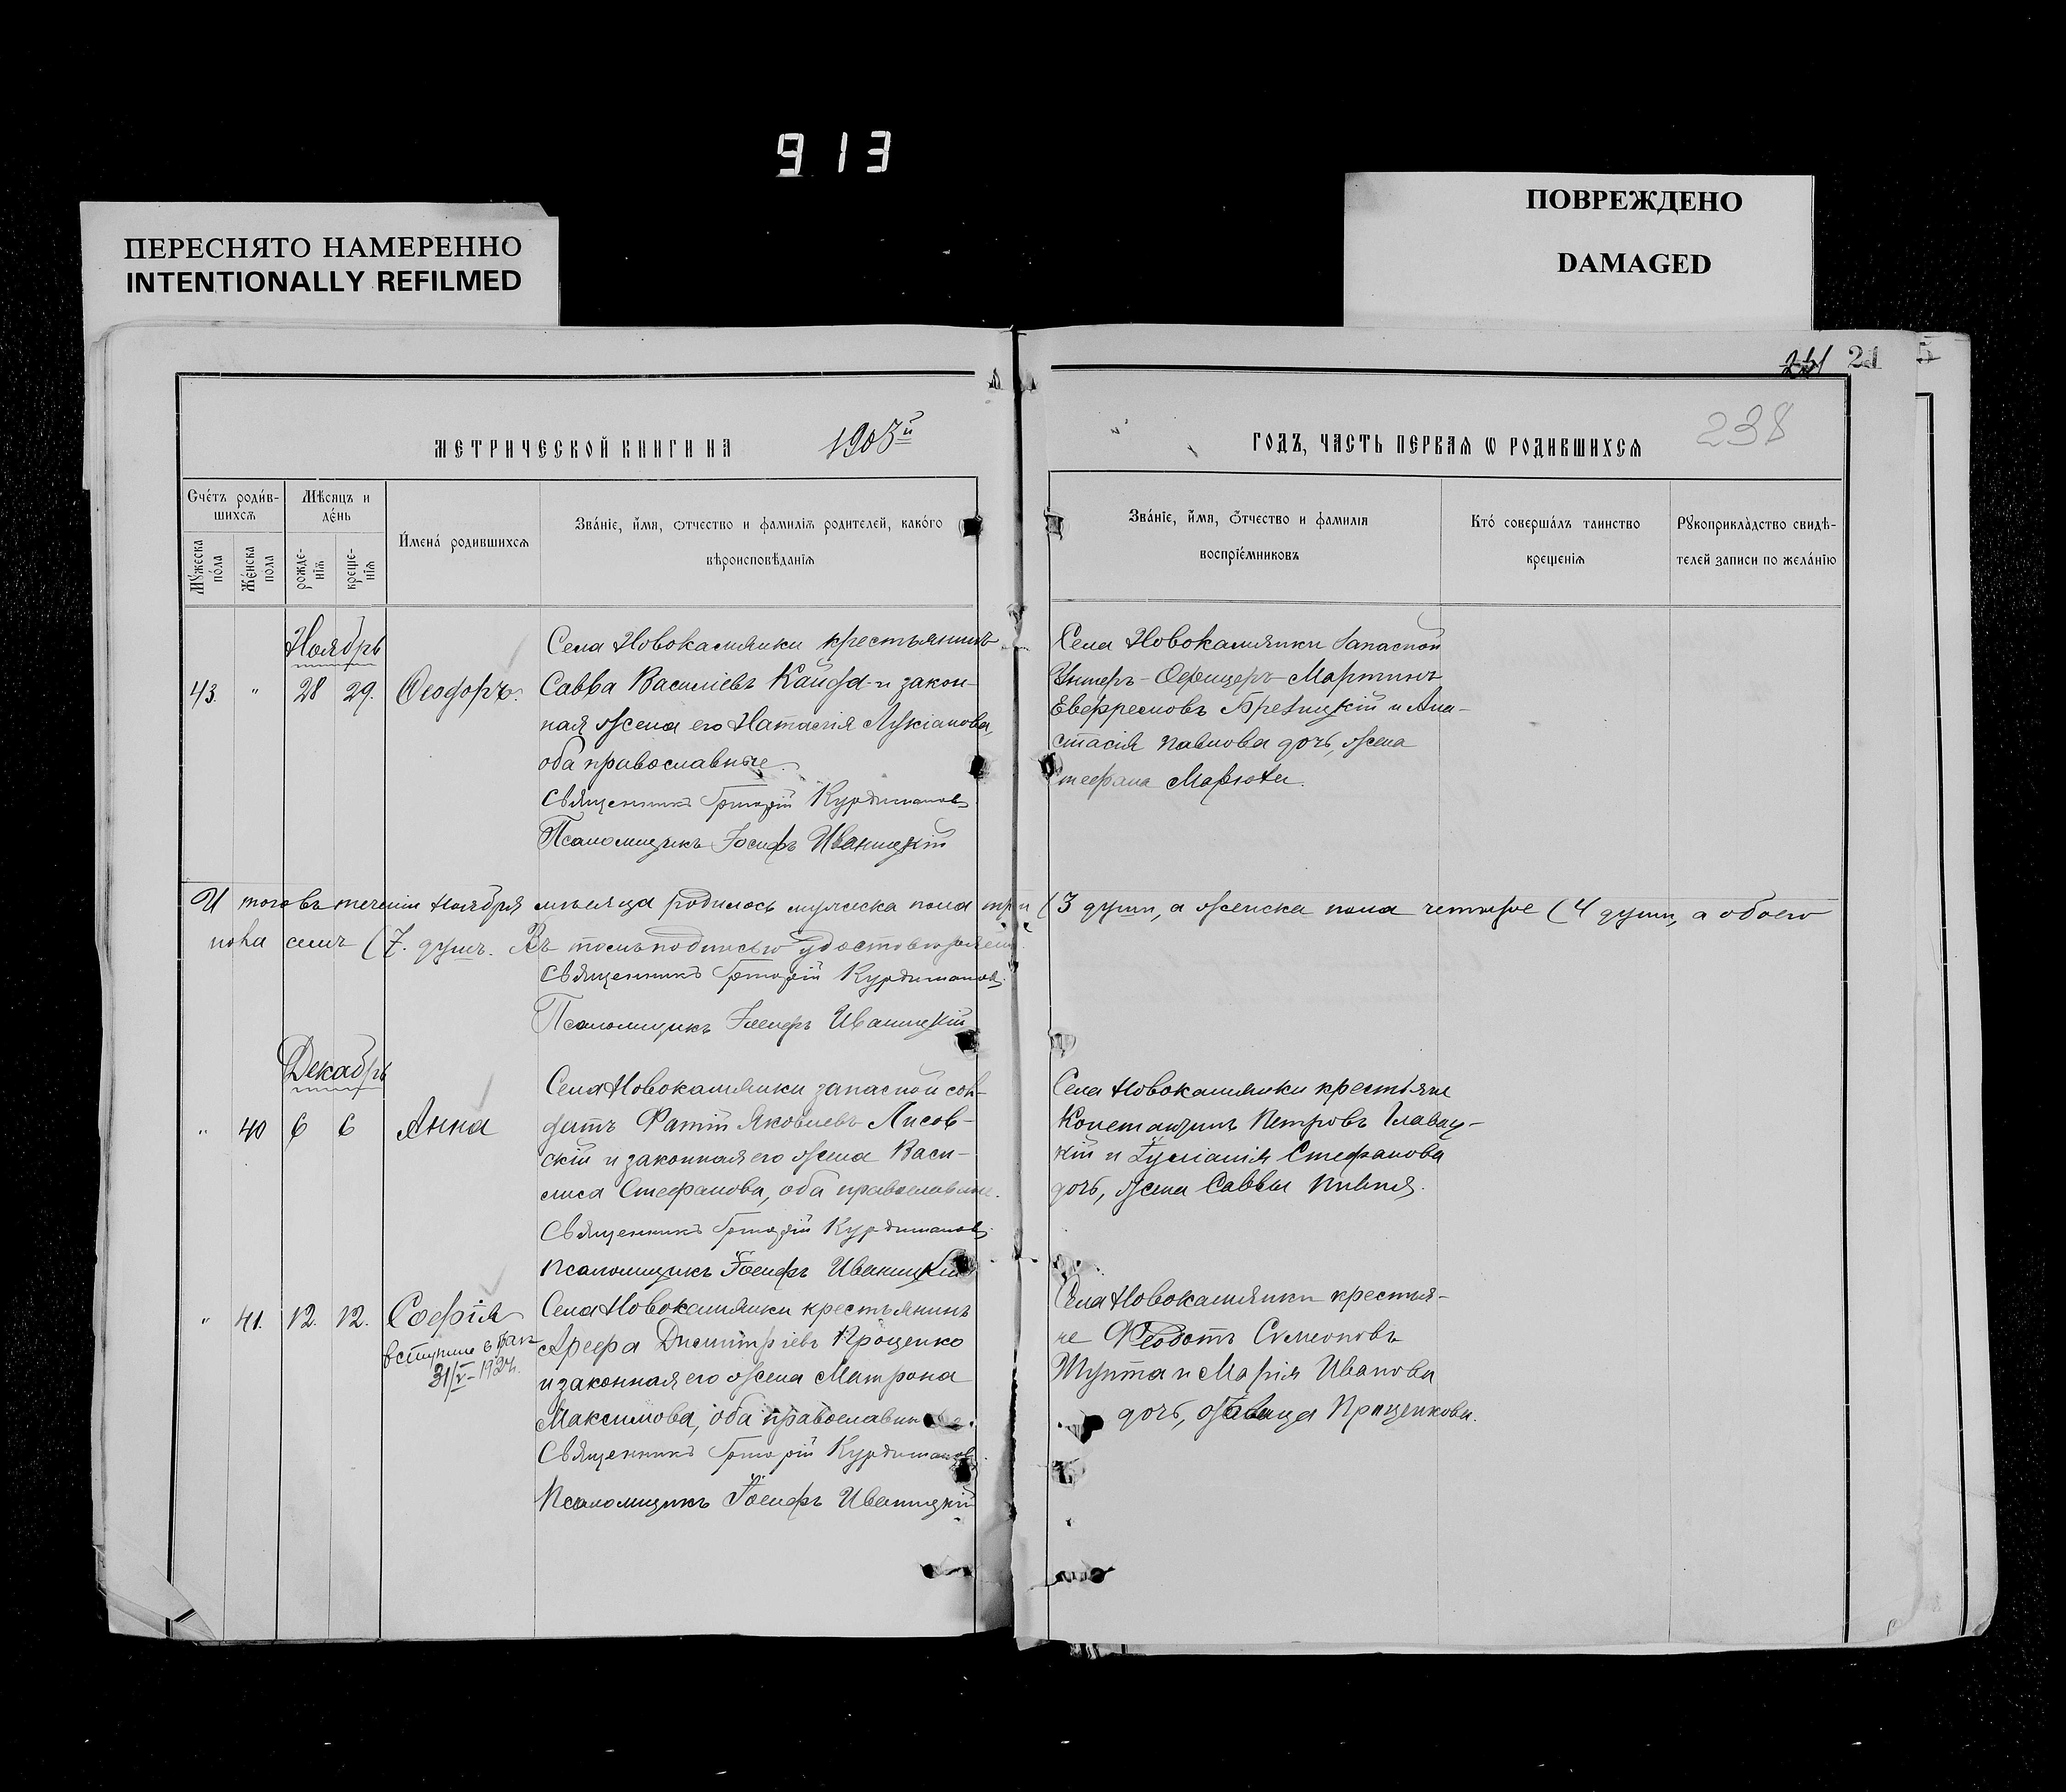 913
ПЕРЕСНЯТО НАМЕРЕННО
INTENTIONALLY REFILMED
ПОВРЕЖДЕНО
DAMAGED
21 5
238
МЕТРИЧЕСКОЙ КНИГИ НА 1903й
ГОДЪ, ЧАСТЬ ПЕРВАЯ Ѡ РОДИВШИХСЯ
Счетъ родив-
шихсѧ
Мѣсяцъ и
день
Мужеска
пола
Женска
пола
рожде-
нiѧ
креще-
нiѧ
Имена родившихсѧ
Званiе, имя, отчество и фамилiѧ родителей, какого
вѣроисповѣданiѧ
Званiе, имя, отчество и фамилiя
воспрiемниковъ
Кто совершалъ таинство
крещенiѧ
Рукоприкладство свидѣ-
телей записи по желанiю
Ноябрь
43. " 28 29. Ѳеодоръ.
Села Новокалиянки крестьянинъ
Савва Василiевъ Кайфа и закон-
ная жена его Наталiя Лукiанова,
оба православные.
Священникъ Григорiй Курдимановъ
Псаломщикъ Iосифъ Иваницкiй
Села Новокалиянки Запасной
Унтеръ-Офицеръ Мартинъ
Евфремовъ Брезницкiй и Ана-
стасiя Павлова дочь, жена
Стефана Марюти.
Итого въ теченiи Ноября мѣсяца родилось мужеска пола три (3 души, а женска пола четыре (4 души, а обоего
пола семь (7. душъ. Въ томъ подписью удостовѣряемъ:
Священникъ Григорiй Курдимановъ.
Псаломщикъ Iосифъ Иваницкiй
Декабрь
" 40 6 6 Анна
Села Новокалиянки запасной сол-
датъ Фатiй Яковлевъ Лисов-
скiй и законная его жена Васи-
лиса Стефанова, оба православные.
Священникъ Григорiй Курдимановъ.
Псаломщикъ Iосифъ Иваницкiй
Села Новокалиянки крестьяне
Константинъ Петровъ Главац-
кiй и Iулiанiя Стефанова
дочь, жена Саввы
" 41. 12. 12. Софiя
вступила в брак
31/V-1924.
Села Новокалиянки крестьянинъ
Арефа Димитрiевъ Проценко
и законная его жена Матрона
Максимова, оба православные.
Священникъ Григорiй Курдимановъ.
Псаломщикъ Iосифъ Иваницкiй
Села Новокалиянки крестья-
не Феодотъ Симеоновъ
Шупта и Марiя Иванова
дочь, Проценкова.